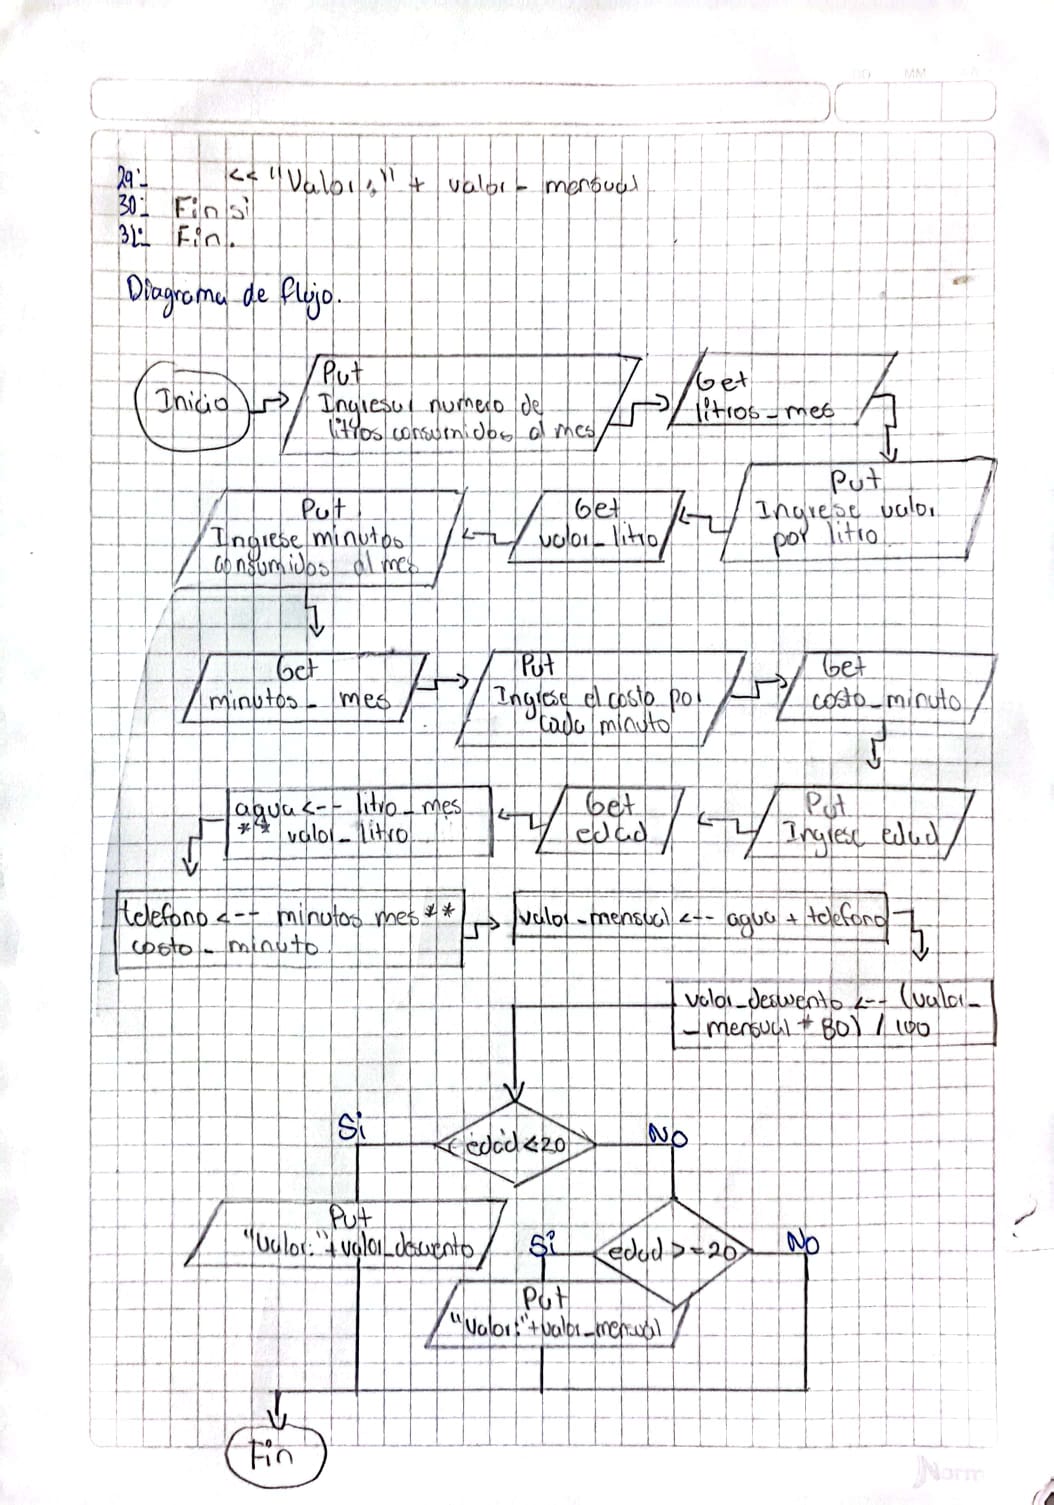 29:- << "Valor:" + valor - mensual
30:- Finsi
31:- Fin.
Diagrama de flujo.
Inicio
Put
Ingresar numero de
litros consumidos al mes
Get
litros_mes
Put
Ingrese valor
por litro
Get
valor_litro
Put
Ingrese minutos
consumidos al mes
Get
minutos_ mes
Put
Ingrese el costo por
cada minuto
Get
costo_minuto
Put
Ingrese edad
Get
edad
agua <-- litro_mes
** valor_litro
telefono <-- minutos mes **
costo - minuto
valor_mensual <-- agua + telefono
valor_descuento <-- (valor_
_mensual * 80) / 100
edad <20
Si
No
Put
"Valor:"+valor_descuento
edad >=20
Si
No
Put
"Valor:"+valor_mensual
Fin
Norm
MM